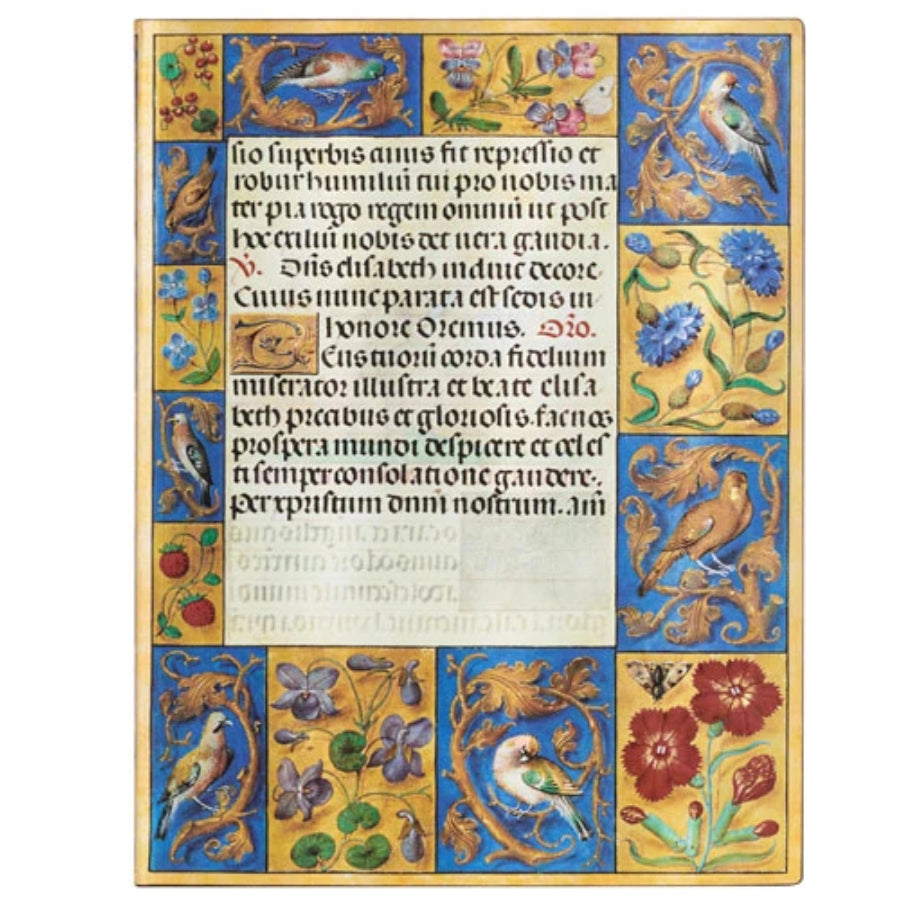 sio superbis cuius fit repressio et
robur humiliū tui pro nobis ma
ter pia rogo regem omniū ut post
hoc exiliū nobis det uera gaudia.
V̄. Dn̄s elisabeth induit decore
Cuius nunc parata est sedis in
honore Oremus. Or̄o.
Eus tuorū corda fidelium
miserator illustra et beate elisa
beth precibus et gloriosis. fac nos
prospera mundi despicere et celes
ti semper consolatione gaudere.
per xpristum dnm̄ nostrum. am̄